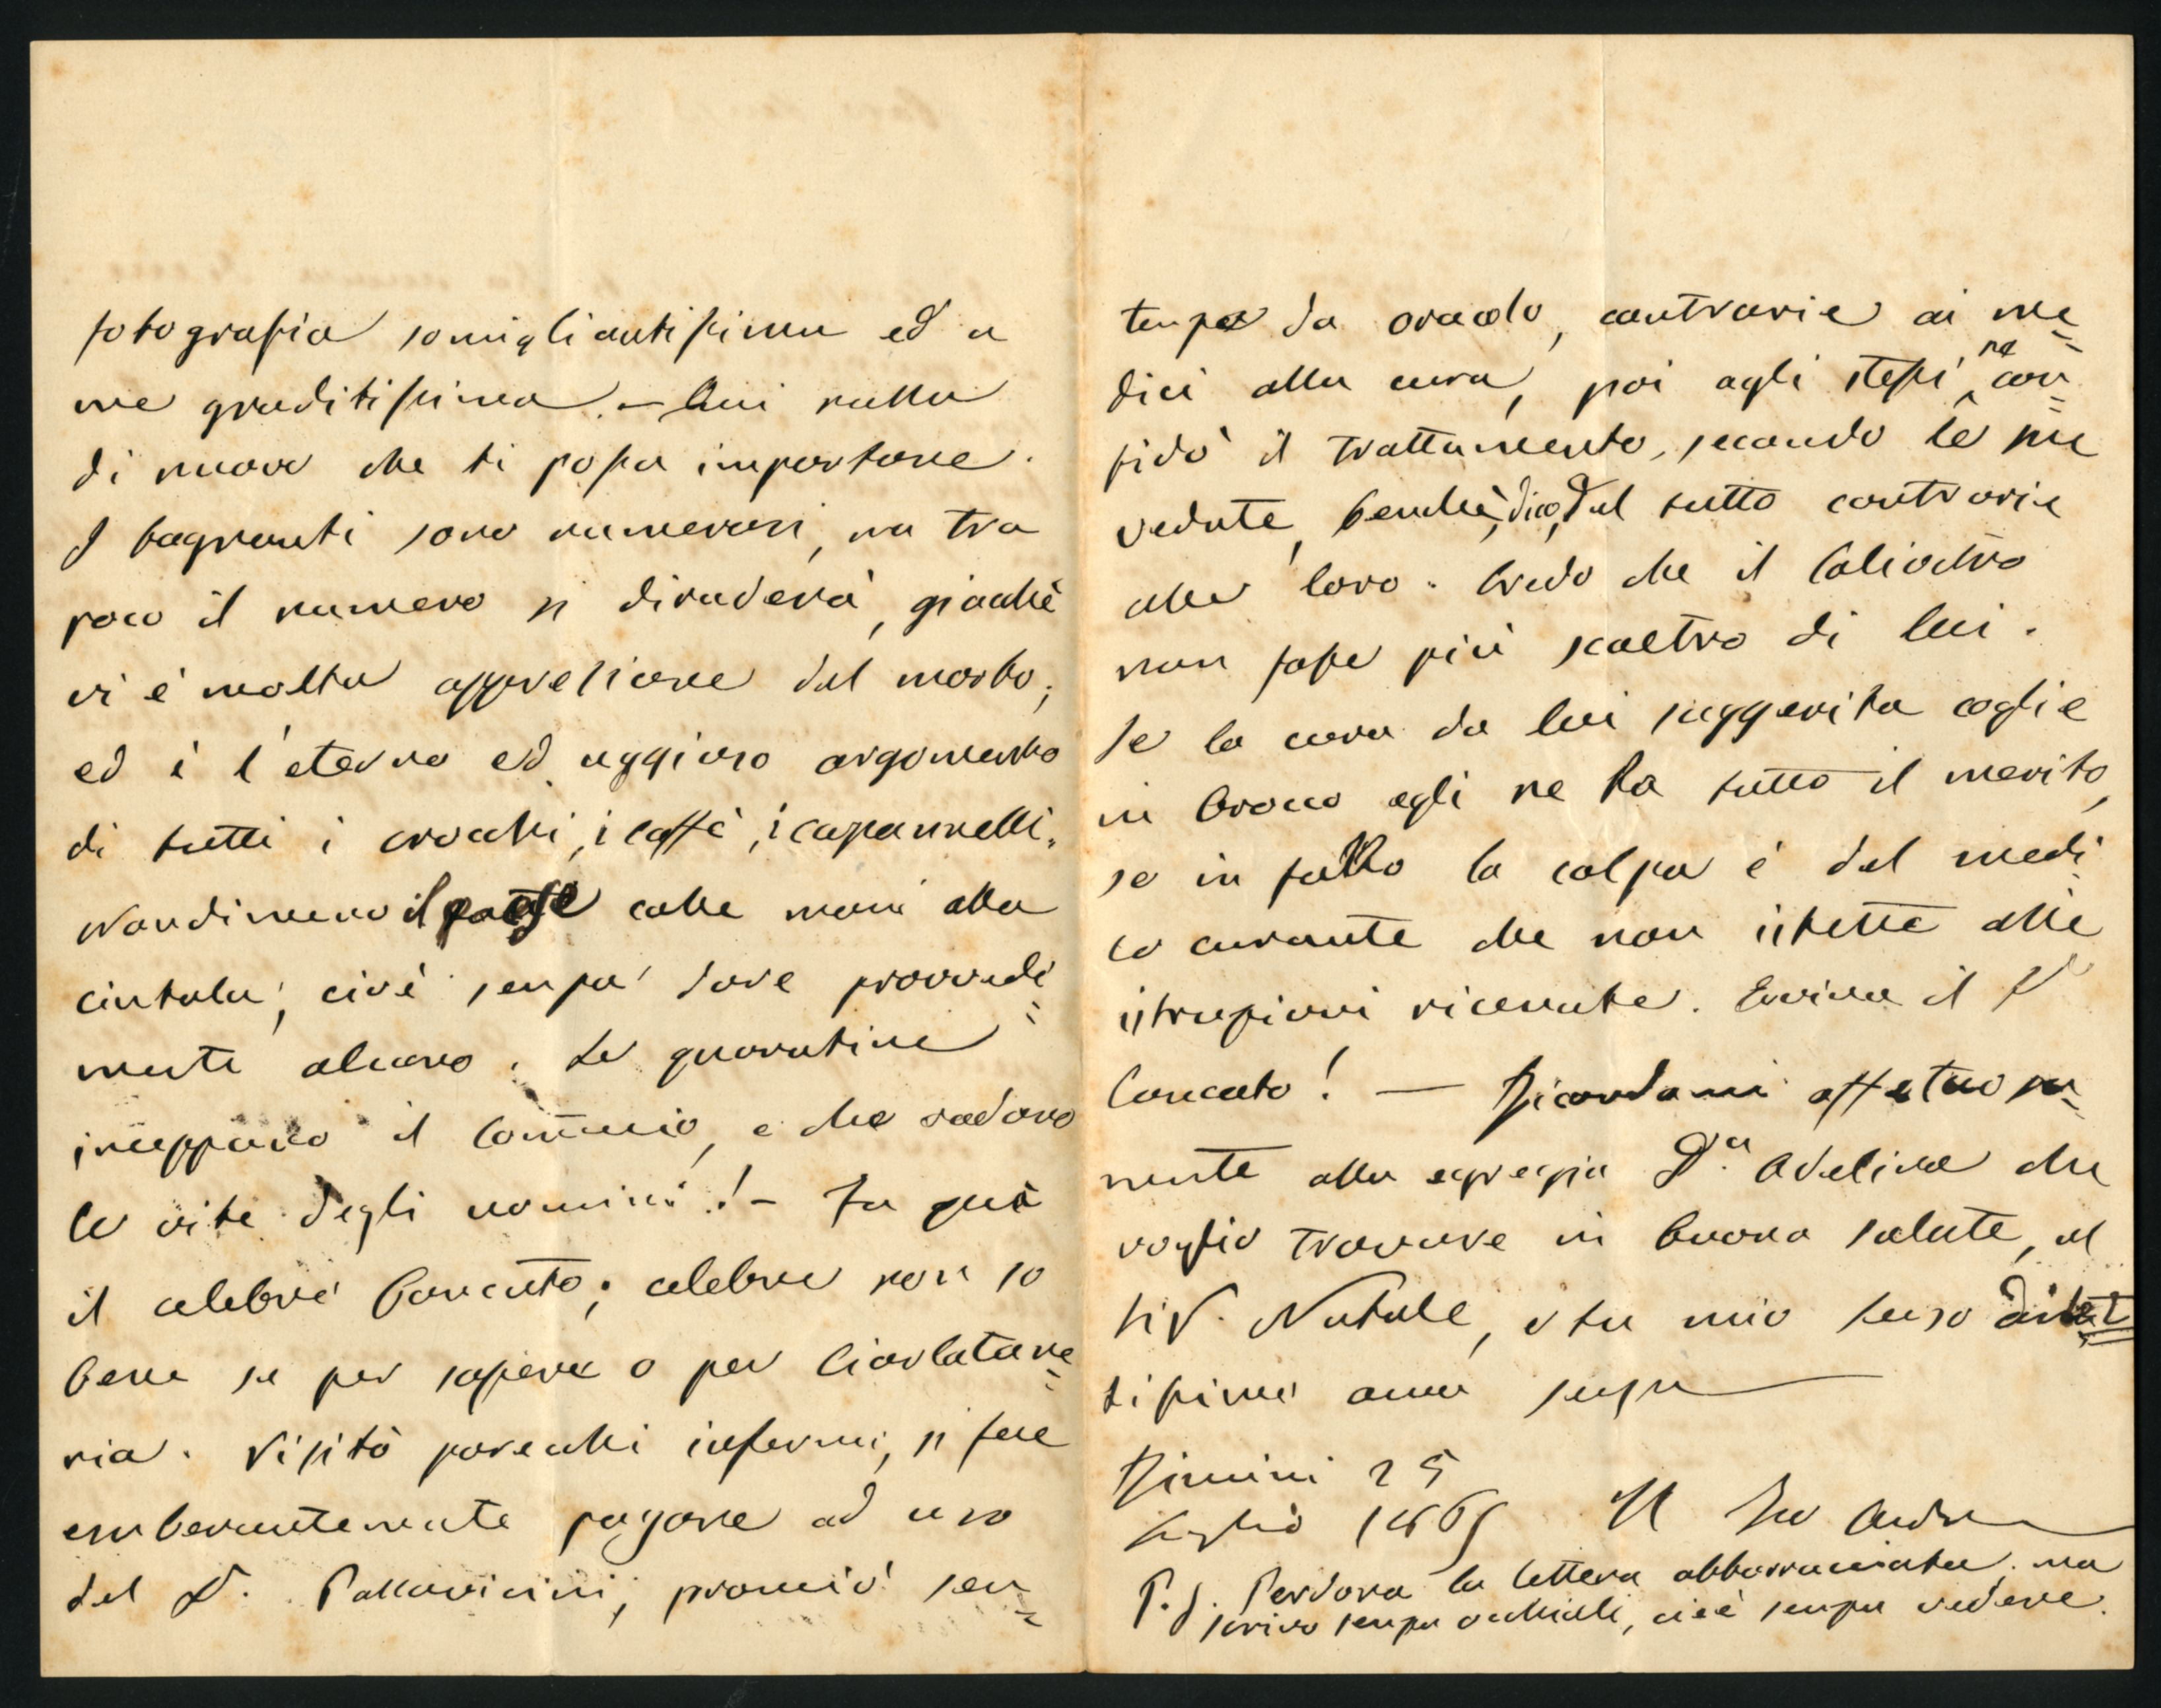 fotografia somigliantissima ed a
me graditissima. – Qui nulla
di nuovo che ti possa importare.
I bagnanti sono numerosi, ma tra
poco il numero si diraderà, giacchè
vi è molta apprensione del morbo;
ed è l'eterno ed uggioso argomento
di tutti i crocchi, i caffè, i capannelli.
Nondimeno il paese colle mani alla
cintola; cioè senza dare provvedi=
menti alcuno. Le quarantine
inceppano il Commercio, e che vadano
le vite degli uomini! – Fu quà
il celebre Concato; celebre non so
bene se per sapere o per Ciarlatane=
ria. Visitò parecchi infermi, si fece
esuberantemente pagare ad uso
del D. Pallavicini; pronunciò sen=
tenze da oracolo, contrarie ai me=
dici alla cura, poi agli stessi ne con=
fidò il trattamento, secondo le sue
vedute, benchè, dico, del tutto contrarie
alle loro. Credo che il Caliostro
non fosse più scaltro di lui.
Se la cura da lui suggerita coglie
in brocco egli ne ha tutto il merito,
se in fallo la colpa è del medi
co curante che non istette alle
istruzioni ricevute. Evviva il D
Concato! — Ricordami affettuosa=
mente alla egregia D.a Adelina che
voglio trovare in buona salute, al
Sig. Natale, e tu mio
tissimo ama sempre
Rimini 25
Luglio 1865 Il Tuo
P.S. Perdona la lettera abborracciata, ma
scrivo senza occhiali, cioè senza vedere.